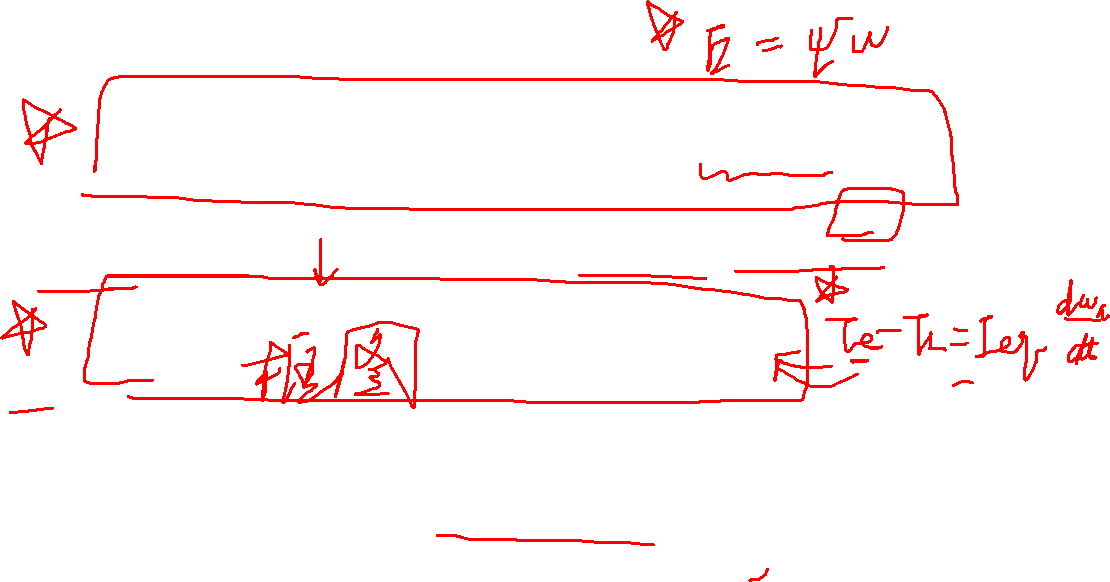 E = ψω
框图
Te-TL=Jeq dωr/dt